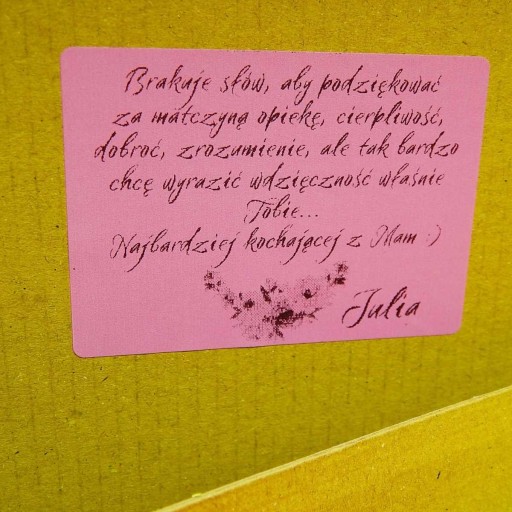 Brakuje słów, aby podziękować
za matczyną opiekę, cierpliwość,
dobroć, zrozumienie, ale tak bardzo
chcę wyrazić wdzięczność właśnie
Tobie...
Najbardziej kochającej z Mam :)
Julia